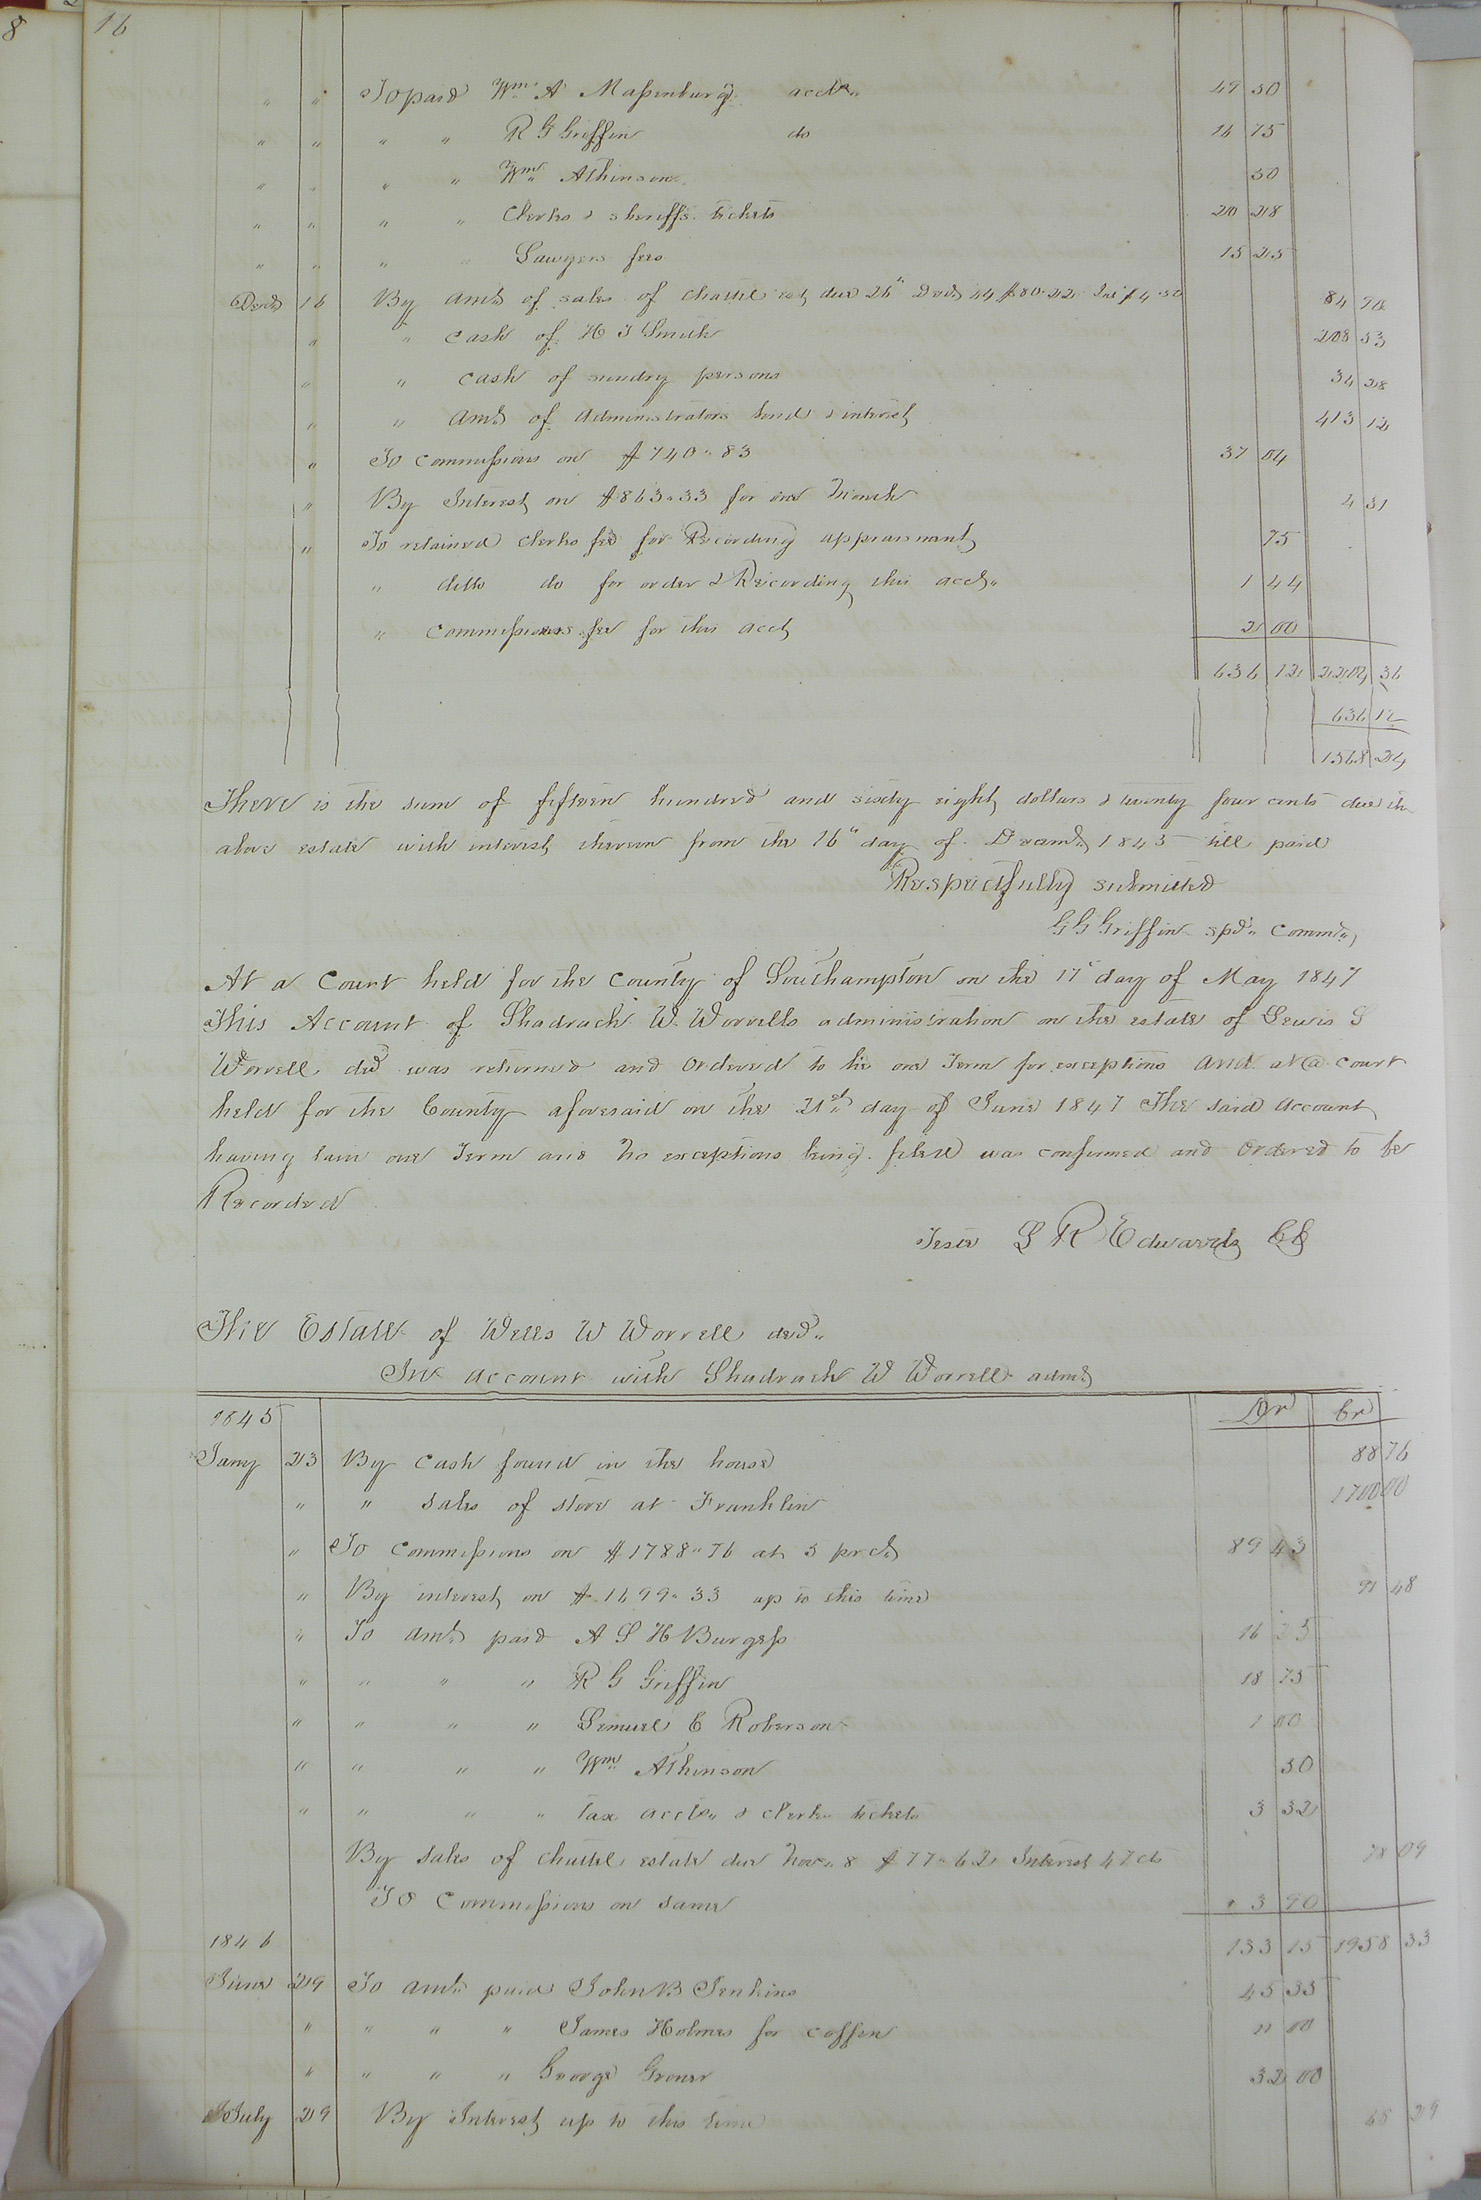 8
16
" " To paid Wm A Massenburg acct 49 50
" " " " R G Griffin do 16 75
" " " " Wm Atkinson 50
" " " " Clerks & sheriffs tickets 20 28
" " " " Lawyers fees 15 25
Decr 16 By Amt of sales of chattel est due 26" Decr 44 $80.22 Int $4.50 84 72
" " cash of H T Smith 208 53
" " cash of sundry persons 34 28
" " Amt of Administrators bond & interest 413 12
" To commissions on $740"83 37 04
" By Interest on $863"33 for one Month 4 31
" To retained clerks fee for Recording appraisment 75
" ditto do for order & Recording this acct" 1 44
" Commissioners fee for this acct 2 00
636 12 2204 36
636 12
1568 24
There is the sum of fifteen hundred and sixty eight dollars & twenty four cents due the
above estate with interest thereon from the 16" day of Decemr 1845 till paid
Respectfully submitted
G G Griffin spd" Commr
At a Court held for the County of Southampton on the 17" day of May 1847
This Account of Shadrach W. Worrells administration on the estate of Lewis S
Worrell decd was returned and Ordered to lie one Term for exceptions and at a court
held for the County aforesaid on the 21st day of June 1847 The said Account
having lain one Term and No exceptions being filed was confirmed and Ordered to be
Recorded
Teste L R Edwards CC
The Estate of Wells W Worrell decd"
In account with Shadrach W Worrell admr
1845 Dr Cr
Jany 23 By Cash found in the house 88 76
" " sales of store at Franklin 1700 00
" To Commissions on $1788"76 at 5 pr ct 89 43
" By interest on $1699"33 up to this time 91 48
" To amt paid A S H Burgess 16 25
" " " " R G Griffin 18 75
" " " " Lemuel C Roberson 1 00
" " " " Wm Atkinson 50
" " " " Tax accts" & clerks tickets 3 32
By sales of chattel estate due Nov" 8 $77"62 Interest 47 cts 78 09
To Commissions on same 3 90
1846 133 15 1958 33
June 29 To amt paid John B Jenkins 45 35
" " " " James Holmes for coffin 11 00
" " " " George Groner 32 00
July 29 By Interest up to this time 68 29